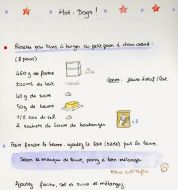 Hot-Dogs !
Recette pour pains à burger ou petit pain à chien chaud :
(8 pains)
460 g de farine
300ml de lait
40 g de sucre
50g de beurre
1/2 cac de sel
2 sachets de levure de boulanger
Faire fondre le beurre, ajoutez le lait (tiède) puis la levure.
Selon la marque de levure, pensez à bien mélanger.
Ajoutez farine, sel et sucre et mélangez.